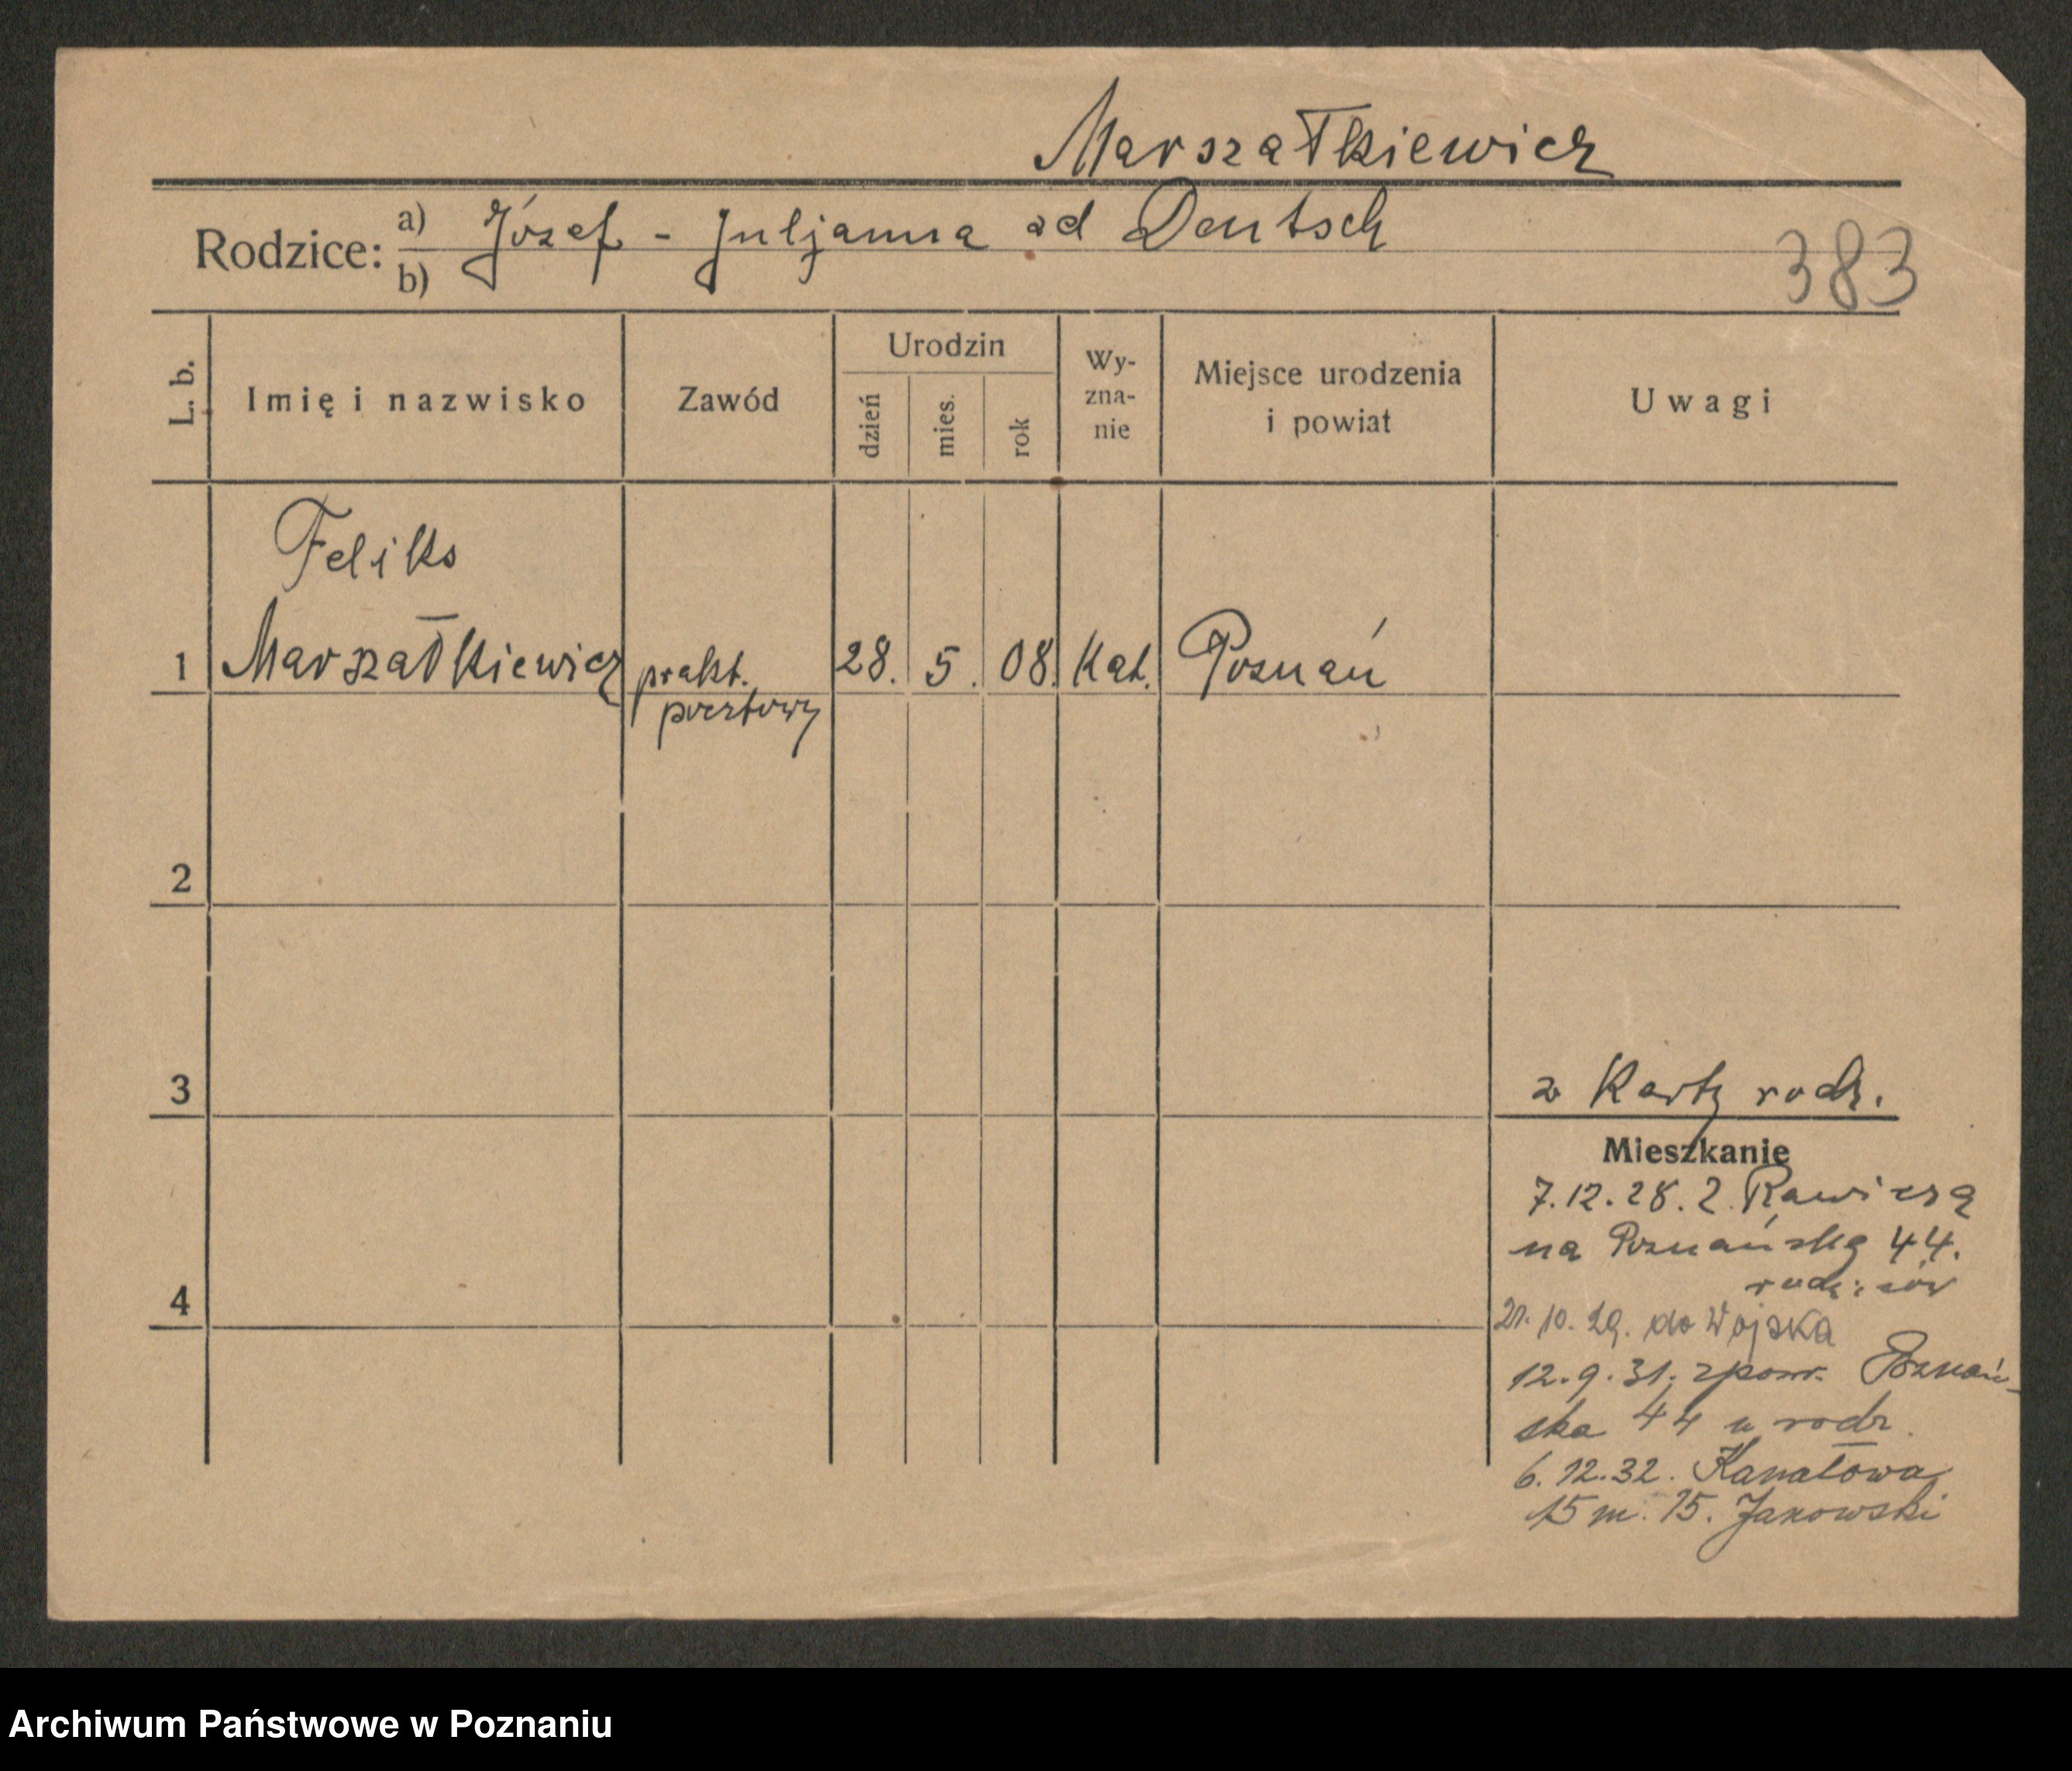 Marszałkiewicz
Rodzice: a) Józef - Juljanna ad Deutsch
b)
383
L. b.
Imię i nazwisko
Zawód
Urodzin
dzień
mies.
rok
Wy-
zna-
nie
Miejsce urodzenia
i powiat
Uwagi
Feliks
1 Marszałkiewicz prakt. 28. 5. 08. Kat. Poznań
pocztowy
2
3
z Karty rodz.
Mieszkanie
7.12.28. z Rawicza
na Poznańską 44.
rodziców
4
21. 10. 29. do Wojska
12. 9. 31. zpow. Poznań-
ska 44 u rodz.
6. 12. 32. Kanałowa
15 m. 15. Janowski
Archiwum Państwowe w Poznaniu